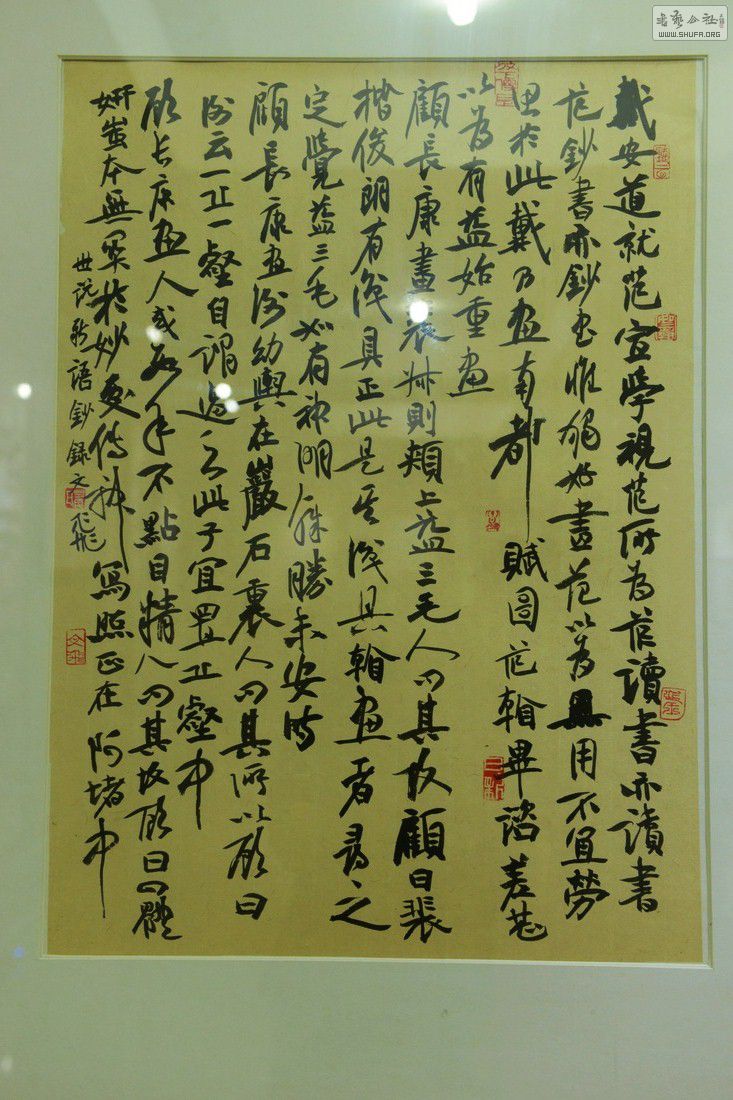 戴安道就范宣學視范所為范讀書亦讀書
范鈔書亦鈔書惟獨好畫范以為無用不宜勞
思於此戴乃畫南都賦圖范翰畢諮嗟甚
以為有益始重畫
顧長康畫裴叔則頰上益三毛人問其故顧曰裴
楷俊朗有識具正此是其識具翰畫者尋之
定覺益三毛如有神明殊勝未安時
顧長康畫謝幼輿在巖石裏人問其所以顧曰
謝云一丘一壑自謂過之此子宜置丘壑中
顧長康畫人或數年不點目精人問其故顧曰四體
妍蚩本無關於妙處傳神寫照正在阿堵中
世说新語鈔錄 文飛
書法公社
WWW.SHUFA.ORG